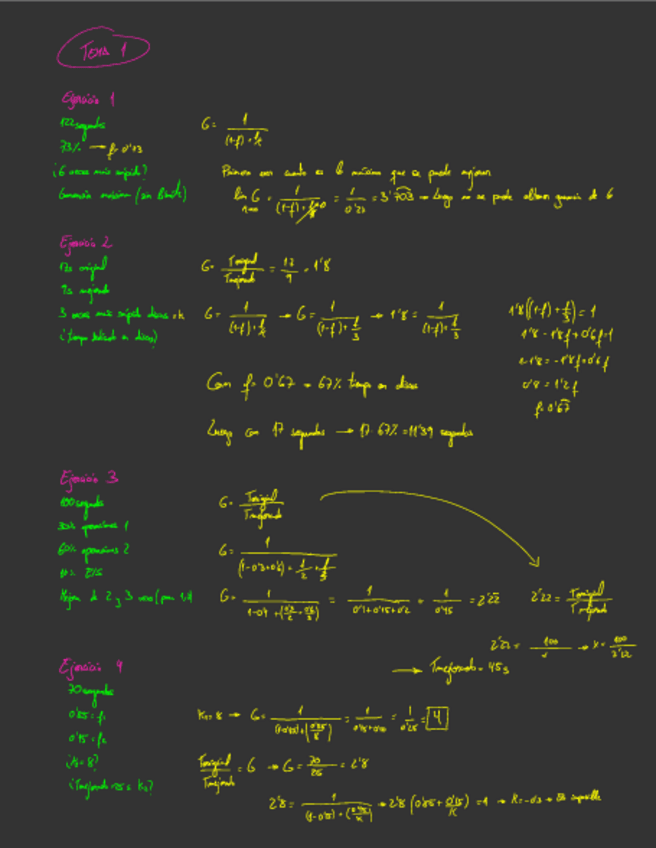 Tema 1
Ejercicio 1
122 segundos
73% → f = 0'73
¿6 veces más rápido?
Ganancia máxima (sin límite)
G = 1 / ((1-f) + f/k)
Primero ver cuanto es lo máximo que se puede mejorar
lim G = 1 / ((1-f) + f/k → 0) = 1 / 0'27 = 3'703 → Luego no se puede obtener ganancia de 6
Ejercicio 2
17s original
9s mejorado
3 veces más rápido disco → k
¿tiempo en disco?
G = Toriginal / Tmejorado = 17 / 9 = 1'8
G = 1 / ((1-f) + f/k) → G = 1 / ((1-f) + f/3) → 1'8 = 1 / ((1-f) + f/3)
1'8((1-f) + f/3) = 1
1'8 - 1'8f + 0'6f = 1
1-1'8 = -1'8f + 0'6f
0'8 = 1'2f
f = 0'67
Con f = 0'67 → 67% tiempo en disco
Luego con 17 segundos → 17 · 67% = 11'39 segundos
Ejercicio 3
100 segundos
30% operaciones 1
60% operaciones 2
10% E/S
Mejora de 2 y 3 veces (para 1,2)
G = Toriginal / Tmejorado
G = 1 / ((1-0'3+0'6) + 1/2 + 1/3)
G = 1 / (1-0'9 + (0'3/2 + 0'6/3)) = 1 / (0'1+0'15+0'2) = 1 / 0'45 = 2'22
2'22 = Toriginal / Tmejorado
2'22 = 100 / x → x = 100 / 2'22
→ Tmejorado = 45s
Ejercicio 4
70 segundos
0'85 = f₁
0'15 = f₂
¿k₁ = 8?
¿Tmejorado = 25s k₂?
K₁ = 8 → G = 1 / ((1-0'85) + (0'85/8)) = 1 / (0'15+0'10) = 1 / 0'25 = 4
Toriginal / Tmejorado = G → G = 70 / 25 = 2'8
2'8 = 1 / ((1-0'15) + (0'15/k)) → 2'8 (0'85 + 0'15/k) = 1 → K = -0'3 → Es imposible